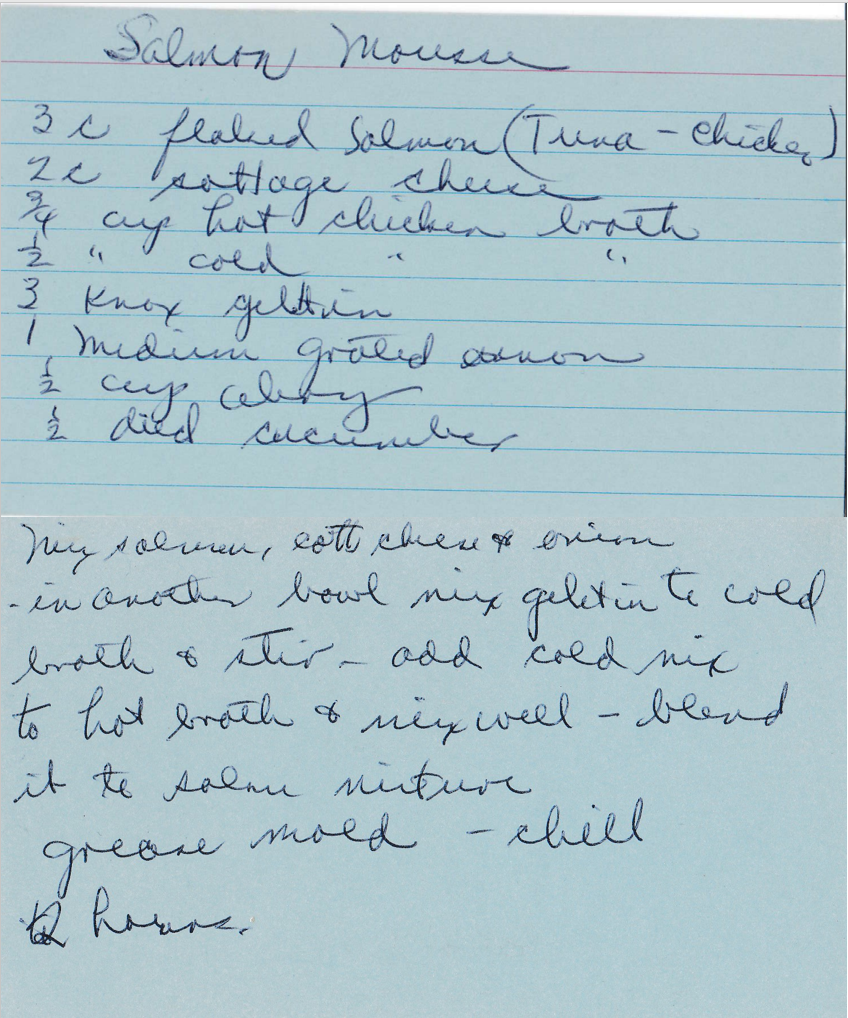 Salmon Mousse
3 c flaked Salmon (Tuna - Chicken)
2 c cottage cheese
3/4 cup hot chicken broth
1/2 " cold " "
3 Knox geltin
1 Medium grated onion
1/2 cup celery
1/2 died cucumber
Mix salmon, cott cheese & onion
- in another bowl mix geletin to cold
broth & stir - add cold mix
to hot broth & mix well - blend
it to salmn mixture
grease mold - chill
hours.